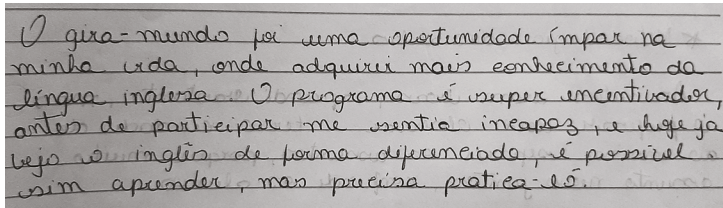 O gira-mundo foi uma oportunidade ímpar na
minha vida, onde adquirir mais conhecimento da
língua inglesa. O programa é super encentivador,
antes de participar me sentia incapaz, e hoje já
vejo o inglês de forma diferenciada, é possível
sim aprender, mas precisa pratica-ló.